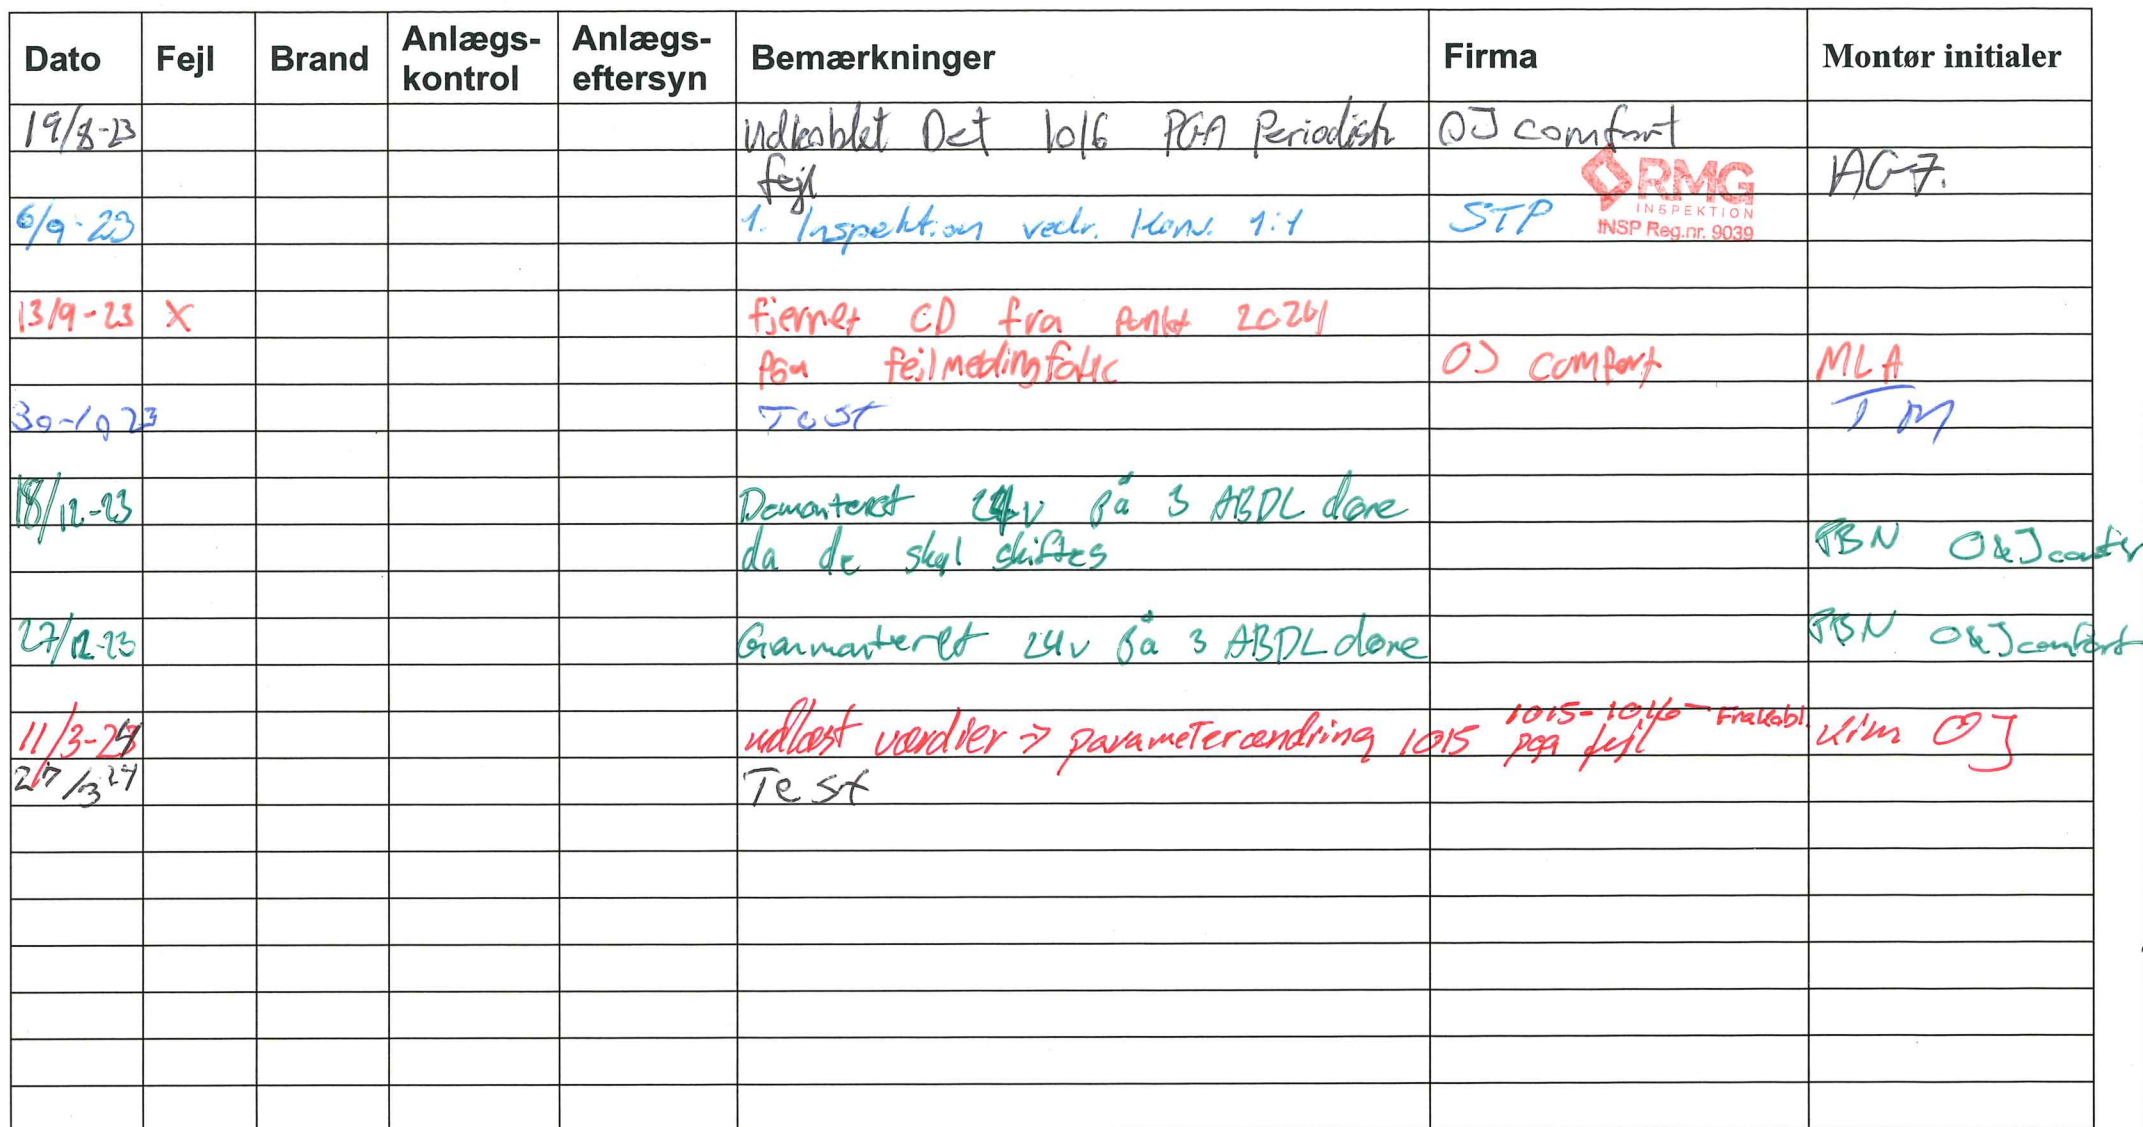 Dato Fejl Brand Anlægs-kontrol Anlægs-eftersyn Bemærkninger Firma Montør initialer
19/8-23 Udkoblet Det 1016 PGA Periodisk OJ comfort
fejl AG7.
RMG
INSPEKTION
INSP Reg.nr. 9039
6/9-23 1. Inspektion vedr. Konv. 1:1 STP
13/9-23 X fjernet CD fra punkt
PGA OJ comfort MLA
30-10 23 Test TM
18/12-23 Demonteret 24v på 3 ABDL døre
da de skal skiftes PBN O&J
27/12-23 Genmonteret 24v på 3 ABDL døre PBN O&J comfort
11/3-24 udlæst værdier → parameterændring 1015 1015-1016 Frakobl. pga fejl Kim OJ
27/3 24 Test